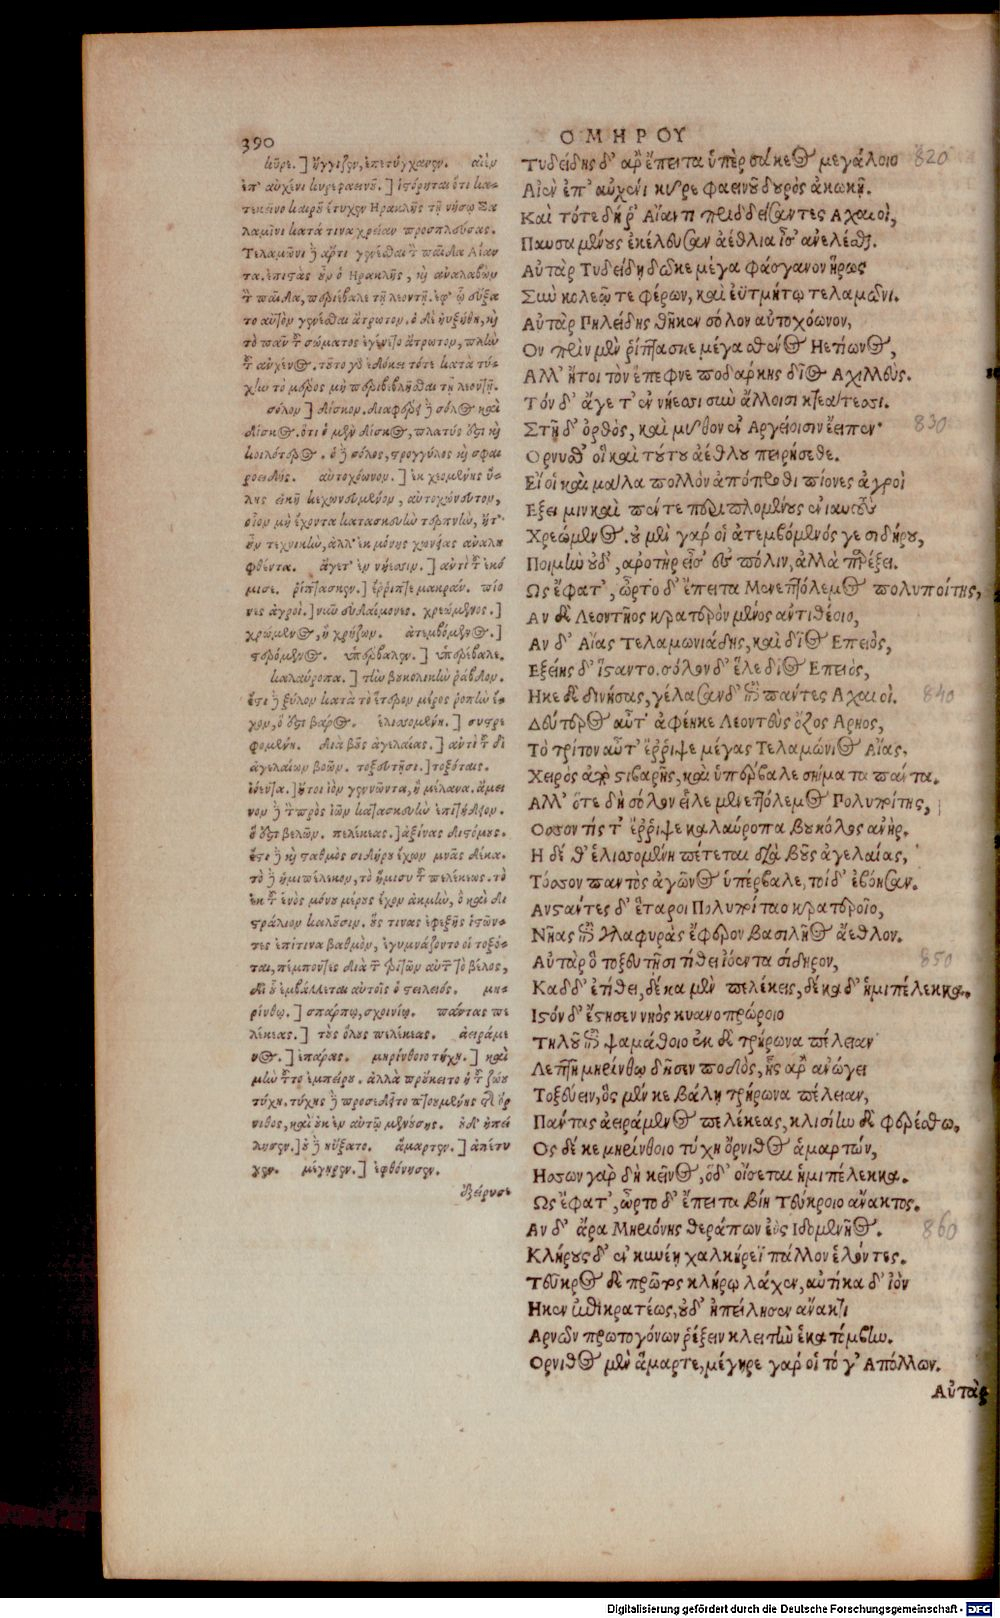 390
ΟΜΗΡΟΥ
κῦρε.] ἤγγιζεν, ἐπετύγχανεν. αἰὲν
ἐπ' αὐχένι κῦρε φαεινοῦ.] ἱστόρηται ὅτι κα-
τ' ἐκεῖνο καιροῦ ἔτυχεν Ηρακλῆς τῇ νήσῳ Σα
λαμῖνι κατά τινα χρείαν προσπλεύσας.
Τελαμῶνι ἢ ἄρτι γενέσθαι τὸν παῖδα Αἴαν
τα. ἐπιστὰς οὖν ὁ Ηρακλῆς, καὶ ἀναλαβὼν
τὸν παῖδα, περιέβαλε τῇ λεοντῇ. ἐφ' ᾧ εὔξα
το αὐτὸν γενέσθαι ἄτρωτον. ὁ δὲ ηὐξήθη, καὶ
τὸ πᾶν τοῦ σώματος ἐγένετο ἄτρωτον, πλὴν
τοῦ αὐχένος. τοῦτο γὰρ ἐδόκει τότε κατὰ τύ-
χην τὸ μέρος μὴ περιβεβλῆσθαι τῇ λεοντῇ.
σόλον] δίσκον. διαφέρει δὲ σόλος καὶ
δίσκος. ὅτι ὁ μὲν δίσκος, πλατύς ἐστι καὶ
κοιλότερος. ὁ δὲ σόλος, στρογγύλος καὶ σφαι
ροειδής. αὐτοχόωνον.] ἐκ χεομένης ὕ-
λης εἰκῇ κεχωνευμένον, αὐτοχώνευτον,
οἷον μὴ ἔχοντα κατασκευὴν τορευτὴν, ἤτ'
οὖν τεχνικὴν, ἀλλ' ἐκ μόνης χωνείας ἀναλη
φθέντα. ἄγετ' ἐν νήεσσιν.] ἀντὶ τοῦ ἐκό
μισε. ῥίπτασκεν.] ἐρρίπτε μακράν. πίο
νες ἀγροί.] νῦν εὐδαίμονες. χρεώμενος.]
χρώμενος, ἢ χρῄζων. ἀτεμβόμενος.]
στερόμενος. ὑπέρβαλεν.] ὑπερέβαλε.
καλαύροπα.] τὴν βουκολικὴν ῥάβδον.
ἔστι δὲ ξύλον κατὰ τὸ ἕτερον μέρος ῥοπὴν ἔ-
χον, ὅ ἐστι βάρος. ἑλισσομένη.] συστρε
φομένη. διὰ βοῦς ἀγελαίας.] ἀντὶ τοῦ δι
ἀγελαίων βοῶν. τοξευτῇσι.] τοξόταις.
ἰόεντα.] ἤτοι ἰὸν γεννῶντα, ἢ μέλανα. ἄμει
νον δὲ τὸν πρὸς ἰῶν κατασκευὴν ἐπιτήδειον.
ὅ ἐστι βελῶν. πελέκεας.] ἀξίνας διστόμους.
ἔστι δὲ καὶ σταθμὸς σιδήρου ἔχων μνᾶς δέκα.
τὸ δὲ ἡμιπέλεκον, τὸ ἥμισυ τοῦ πελέκεως. τὸ
ἐκ τοῦ ἑνὸς μόνου μέρους ἔχον ἀκμὴν, ὃ καὶ δι
στράλιον καλοῦσιν. οὕς τινας ἐφεξῆς ἱστῶν-
τες ἐπί τινα βαθμὸν, ἐγυμνάζοντο οἱ τοξό-
ται, πέμποντες διὰ τῶν ῥιζῶν αὐτῶν τὸ βέλος,
δι' οὗ ἐμβάλλεται αὐτοῖς ὁ στειλειός. μη-
ρίνθῳ.] σπάρτῳ, σχοινίῳ. πάντας πε
λέκεας.] τοὺς ὅλους πελέκεας. ἀειράμε
νος.] ἐπάρας. μηρίνθοιο τύχῃ.] καὶ
μὴν τοῦτο ἐμπείρου. ἀλλὰ προὔκειτο ἢ τοῦ ζῴου
τύχη. τύχης δὲ προσεδεῖτο πτοουμένης τῆς ὄρ
νιθος, καὶ οὐκ ἐν αὐτῷ μενούσης. οὐδ' ἠπεί
λησεν.] οὐ δὲ ηὔξατο. ἅμαρτεν.] ἀπέτυ
χεν. μέγηρεν.] ἐφθόνησεν.
ἐξείρυσε
Τυδείδης δ' ἂρ ἔπειτα ὑπὲρ σάκεος μεγάλοιο 820
Αἰὲν ἐπ' αὐχένι κῦρε φαεινοῦ δουρὸς ἀκωκῇ.
Καὶ τότε δή ῥ' Αἴαντι περιδδείσαντες Αχαιοὶ,
Παυσαμένους ἐκέλευσαν ἀέθλια ἶσ' ἀνελέσθαι.
Αὐτὰρ Τυδείδῃ δῶκε μέγα φάσγανον ἥρως
Σὺν κολεῷ τε φέρων, καὶ ἐϋτμήτῳ τελαμῶνι.
Αὐτὰρ Πηλείδης θῆκεν σόλον αὐτοχόωνον,
Ον πρὶν μὲν ῥίπτασκε μέγα σθένος Ηετίωνος,
Αλλ' ἤτοι τὸν ἔπεφνε ποδάρκης δῖος Αχιλλεύς.
Τόν δ' ἄγε τ' ἐν νήεσσι σὺν ἄλλοισι κτεάτεσσι.
Στῆ δ' ὀρθὸς, καὶ μῦθον ἐν Αργείοισιν ἔειπεν· 830
Ορνυσθ' οἳ καὶ τούτου ἀέθλου πειρήσεσθε.
Εἴ οἱ καὶ μάλα πολλὸν ἀπόπροθι πίονες ἀγροὶ
Εξει μιν καὶ πέντε περιπλομένους ἐνιαυτοὺς
Χρεώμενος. οὐ μὲν γάρ οἱ ἀτεμβόμενός γε σιδήρου,
Ποιμὴν οὐδ', ἀροτὴρ εἶσ' ἐς πόλιν, ἀλλὰ παρέξει.
Ως ἔφατ', ὦρτο δ' ἔπειτα Μενεπτόλεμος πολυποίτης,
Αν δὲ Λεοντῆος κρατερὸν μένος ἀντιθέοιο,
Αν δ' Αἴας Τελαμωνιάδης, καὶ δῖος Επειὸς,
Εξείης δ' ἵσταντο. σόλον δ' ἕλε δῖος Επειὸς,
Ηκε δὲ δινήσας, γέλασαν δ' ἐπὶ πάντες Αχαιοί. 840
Δεύτερος αὖτ' ἀφέηκε Λεοντεὺς ὄζος Αρηος,
Τὸ τρίτον αὖτ' ἔρριψε μέγας Τελαμώνιος Αἴας,
Χειρὸς ἄπο στιβαρῆς, καὶ ὑπέρβαλε σήματα πάντα.
Αλλ' ὅτε δὴ σόλον εἷλε μενεπτόλεμος Πολυποίτης,
Οσσον τίς τ' ἔρριψε καλαύροπα βουκόλος ἀνὴρ.
Η δέ θ' ἑλισσομένη πέτεται διὰ βοῦς ἀγελαίας,
Τόσσον παντὸς ἀγῶνος ὑπέρβαλε, τοὶ δ' ἐβόησαν.
Ανστάντες δ' ἕταροι Πολυποίταο κρατεροῖο,
Νῆας ἐπὶ γλαφυρὰς ἔφερον βασιλῆος ἄεθλον.
Αὐτὰρ ὃ τοξευτῇσι τίθει ἰόεντα σίδηρον, 850
Καδδ' ἐτίθει, δέκα μὲν πελέκεις, δέκα δ' ἡμιπέλεκκα.
Ιστόν δ' ἔστησεν νηὸς κυανοπρώροιο
Τηλοῦ ἐπὶ ψαμάθοιο ἐκ δὲ τρήρωνα πέλειαν
Λεπτῇ μηρίνθῳ δῆσεν ποδὸς, ἧς ἂρ ἀνώγει
Τοξεύειν, ὃς μέν κε βάλῃ τρήρωνα πέλειαν,
Πάντας ἀειράμενος πελέκεας, κλισίην δὲ φερέσθω.
Ος δέ κε μηρίνθοιο τύχῃ ὄρνιθος ἁμαρτών,
Ησσων γὰρ δὴ κεῖνος, ὅδ' οἴσεται ἡμιπέλεκκα.
Ως ἔφατ', ὦρτο δ' ἔπειτα βίη Τεύκροιο ἄνακτος.
Αν δ' ἄρα Μηριόνης θεράπων ἐὺς Ιδομενῆος. 860
Κλήρους δ' ἐν κυνέῃ χαλκήρεϊ πάλλον ἑλόντες.
Τεῦκρος δὲ πρῶτος κλήρῳ λάχεν, αὐτίκα δ' ἰὸν
Ηκεν ἐπικρατέως, οὐδ' ἠπείλησεν ἄνακτι
Αρνῶν πρωτογόνων ῥέξειν κλειτὴν ἑκατόμβην.
Ορνιθος μὲν ἅμαρτε, μέγηρε γάρ οἱ τό γ' Απόλλων.
Αὐτὰρ
Digitalisierung gefördert durch die Deutsche Forschungsgemeinschaft - DFG